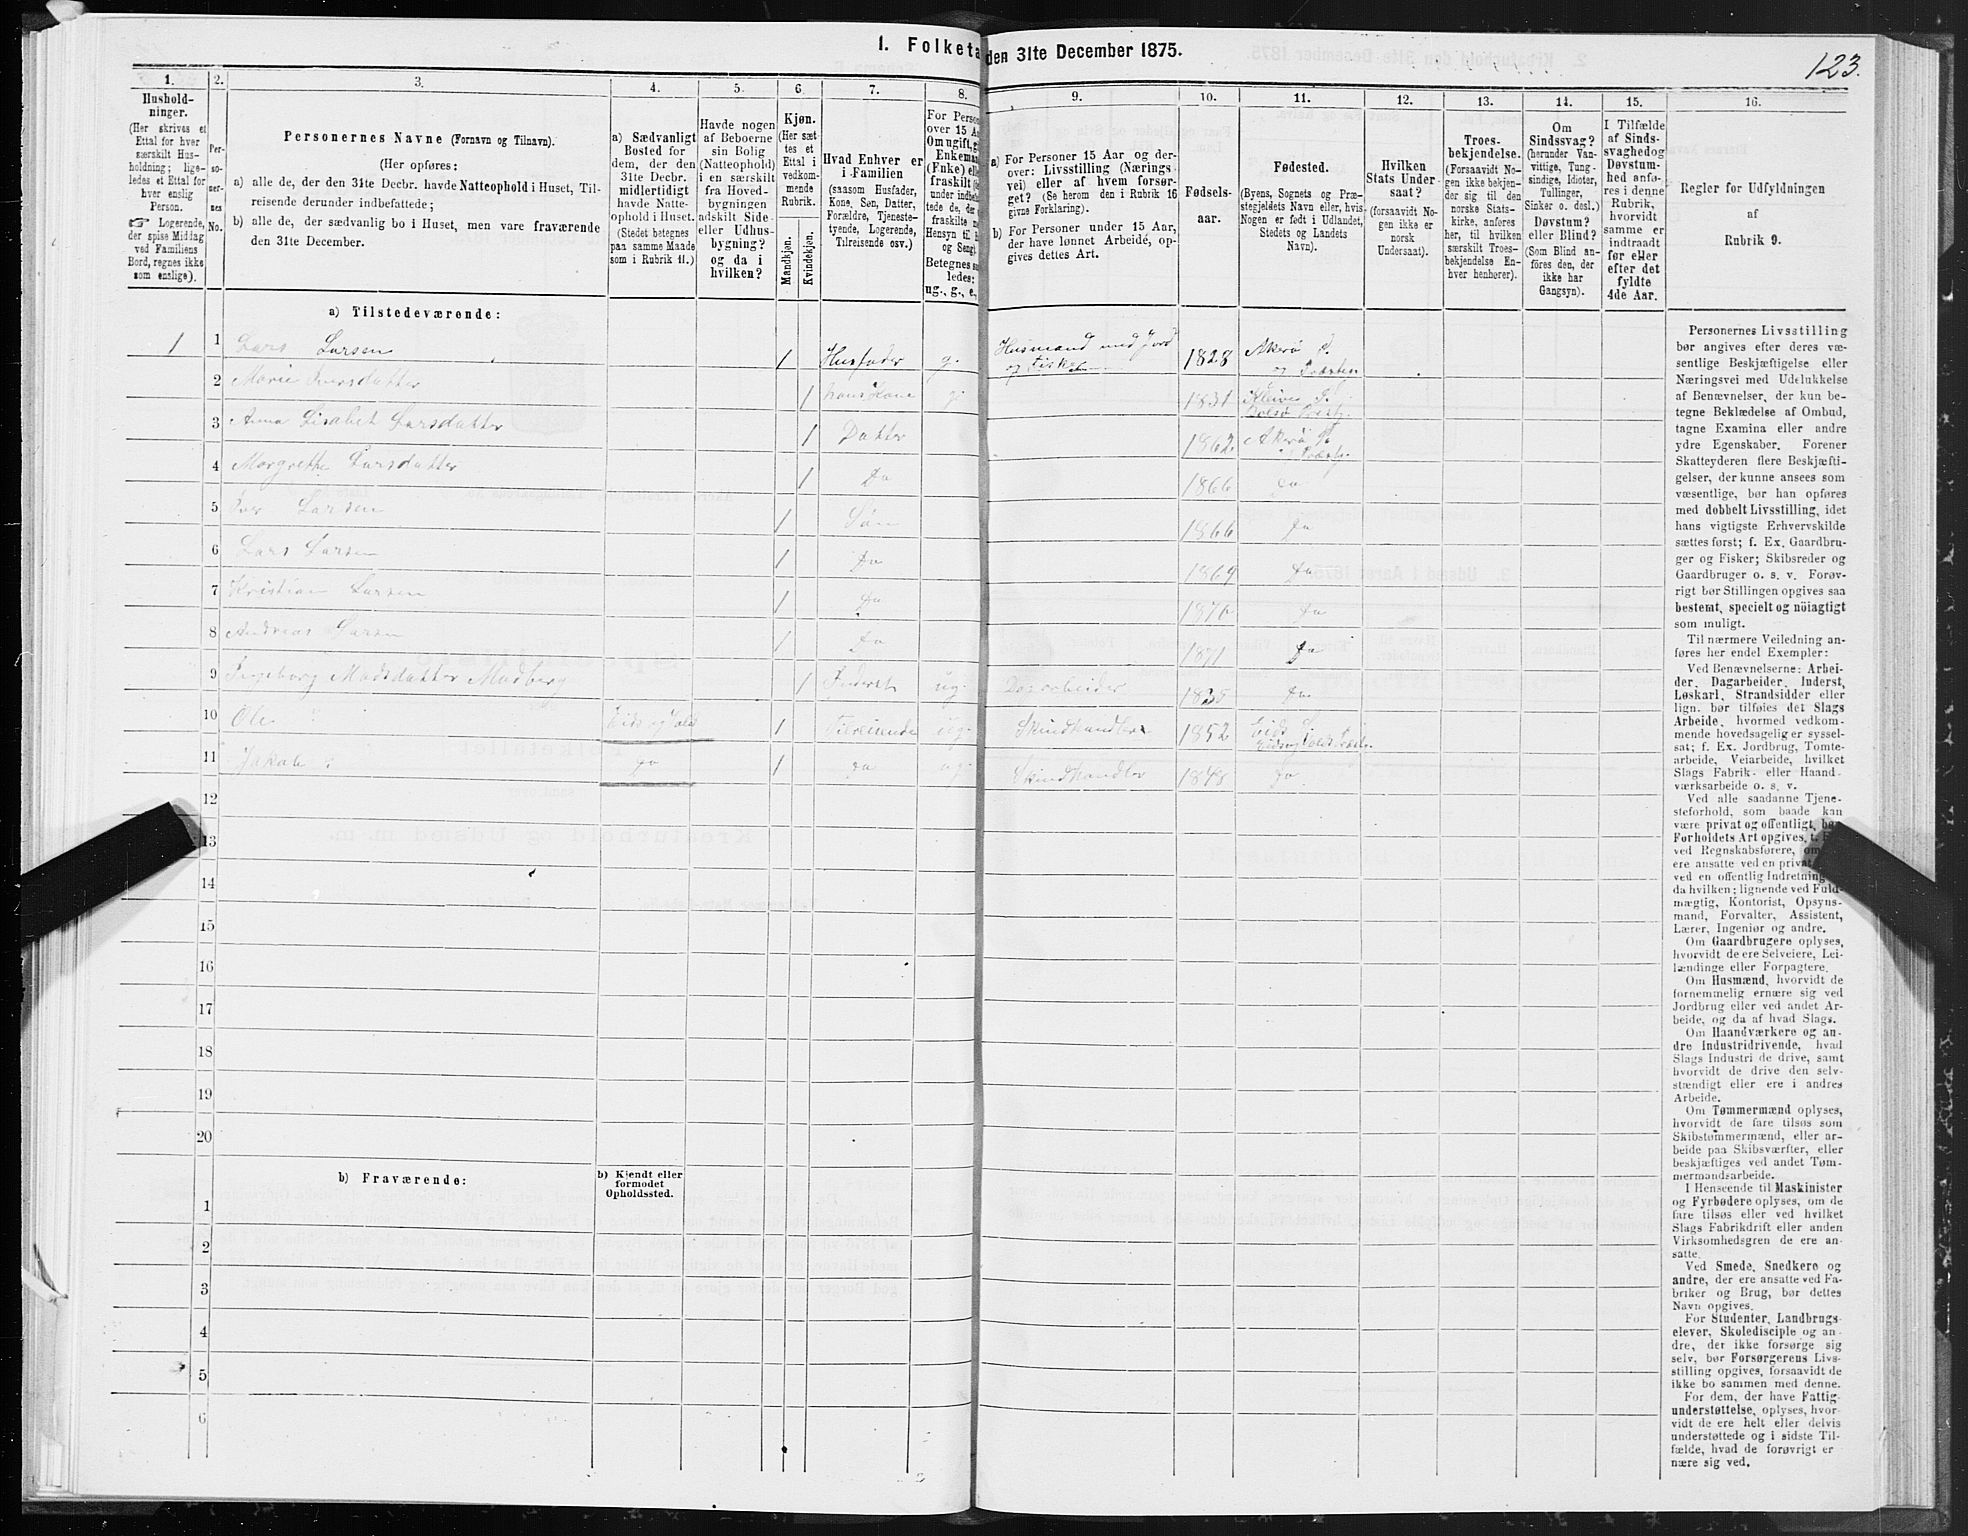 1. Folketa
den 31te December 1875.
123.
1.
2.
3.
4.
5.
6.
7.
8.
9.
10.
11.
12.
13.
14.
15.
16.
Hushold-
ninger.
(Her skrives et
Ettal for hver
særskilt Hus-
holdning; lige-
ledes et Ettal for
hver enslig
Person.
☞ Logerende,
der spise Middag
ved Familiens
Bord, regnes ikke
som enslige).
Per-
so-
ner-
nes
No.
Personernes Navne (Fornavn og Tilnavn).
(Her opføres:
a) alle de, der den 31te Decbr. havde Natteophold i Huset, Til-
reisende derunder indbefattede;
b) alle de, der sædvanlig bo i Huset, men vare fraværende
den 31te December.
a) Sædvanligt
Bosted for
dem, der den
31te Decbr.
midlertidigt
havde Natte-
ophold i Huset.
(Stedet betegnes
paa samme Maade
som i Rubrik 11.)
Havde nogen
af Beboerne
sin Bolig
(Natteophold)
i en særskilt
fra Hoved-
bygningen
adskilt Side-
eller Udhus-
bygning?
og da i
hvilken?
Kjøn.
(Her sæt-
tes et
Ettal i
vedkom-
mende
Rubrik.
Mandkjøn.
Kvindekjøn.
Hvad Enhver er
i Familien
(saasom Husfader,
Kone, Søn, Datter,
Forældre, Tjeneste-
tyende, Logerende,
Tilreisende osv.)
For Person
over 15 Aa
Om ugift, g
Enkeman
(Enke) elle
fraskilt (
under indbe
tede de, der
fraskilte m
Hensyn til
og Seng).
Betegnes sa
ledes:
ug., g., e.,
a) For Personer 15 Aar og der-
over: Livsstilling (Nærings-
vei) eller af hvem forsør-
get? (Se herom den i Rubrik 16
givne Forklaring).
b) For Personer under 15 Aar,
der have lønnet Arbeide, op-
gives dettes Art.
Fødsels-
aar.
Fødested.
(Byens, Sognets og Præ-
stegjeldets Navn eller, hvis
Nogen er født i Udlandet,
Stedets og Landets
Navn).
Hvilken
Stats Under-
saat?
(forsaavidt No-
gen ikke er
norsk
Undersaat).
Troes-
bekjendelse.
(Forsaavidt No-
gen ikke bekjen-
der sig til den
norske Stats-
kirke, anføres
her, til hvilken
særskilt Troes-
bekjendelse En-
hver henhører).
Om
Sindssvag?
(herunder Van-
vittige, Tung-
sindige, Idioter,
Tullinger,
Sinker o. desl.)
Døvstum?
eller Blind?
(Som Blind an-
føres den, der
ikke har
Gangsyn).
I Tilfælde
af Sinds-
svaghed og
Døvstum-
hed anfø-
res i denne
Rubrik,
hvorvidt
samme er
indtraadt
før eller
efter det
fyldte
4de Aar.
Regler for Udfyldningen
af
Rubrik 9.
a) Tilstedeværende:
1 1 Lars Larsen 1 Husfader g. Husmand med Jord og Fisker 1828 Akerø S. og Præstegj.
2 Marie Iversdatter 1 hans Kone g. 1831 Kleive S. Bolsø Prestgj.
3 Anna Lisabet Larsdatter 1 Datter 1862 Akerø S. og Præstgj.
4 Margrethe Larsdatter 1 Do 1866 Do
5 Iver Larsen 1 Søn 1866 Do
6 Lars Larsen 1 Do 1869 Do
7 Kristian Larsen 1 Do 1870 Do
8 Andreas Larsen 1 Do 1871 Do
9 Ingeborg Madsdatter 1 Inderst ug. Dagarbeider 1835 Do
10 Ole 1 Tilreisende ug. Skindhandler 1852 Eids
11 Jakob Do 1 Do ug. Skindhandler 1848 Do
12
13
14
15
16
17
18
19
20
b) Fraværende:
b) Kjendt eller
formodet
Opholdssted.
1
2
3
4
5
6
Personernes Livsstilling
bør angives efter deres væ-
sentlige Beskjæftigelse eller
Næringsvei med Udelukkelse
af Benævnelser, der kun be-
tegne Beklædelse af Ombud,
tagne Examina eller andre
ydre Egenskaber. Forener
Skatteyderen flere Beskjæfti-
gelser, der kunne ansees som
væsentlige, bør han opføres
med dobbelt Livsstilling, idet
hans vigtigste Erhvervskilde
sættes først; f. Ex. Gaardbru-
ger og Fisker; Skibsreder og
Gaardbruger o. s. v. Forøv-
rigt bør Stillingen opgives saa
bestemt, specielt og nöiagtigt
som muligt.
Til nærmere Veiledning an-
føres her endel Exempler:
Ved Benævnelserne: Arbei-
der, Dagarbeider, Inderst,
Løskarl, Strandsidder eller
lign. bør tilføies det Slags
Arbeide, hvormed vedkom-
mende hovedsagelig er syssel-
sat; f. Ex. Jordbrug, Tomte-
arbeide, Veiarbeide, hvilket
Slags Fabrik- eller Haand-
værksarbeide o. s. v.
Ved alle saadanne Tjene-
steforhold, som baade kan
være privat og offentligt, bør
Forholdets Art opgives, t.
ved Regnskabsførere, om
ere ansatte ved en privat
ved en offentlig Indretning
da hvilken; lignende ved Fuld-
mægtig, Kontorist, Opsyns-
mand, Forvalter, Assistent,
Lærer, Ingeniør og andre.
Om Gaardbrugere oplyses,
hvorvidt de ere Selveiere, Lei-
lændinge eller Forpagtere.
Om Husmænd, hvorvidt de
fornemmelig ernære sig ved
Jordbrug eller ved andet Ar-
beide, og da af hvad Slags.
Om Haandværkere og an-
dre Industridrivende, hvad
Slags Industri de drive, samt
hvorvidt de drive den selv-
stændigt eller ere i andres
Arbeide.
Om Tømmermænd oplyses,
hvorvidt de fare tilsøs som
Skibstømmermænd, eller ar-
beide paa Skibsværfter, eller
beskjæftiges ved andet Tøm-
mermandsarbeide.
I Henseende til Maskinister
og Fyrbødere oplyses, om de
fare tilsøs eller ved hvilket
Slags Fabrikdrift eller anden
Virksomhedsgren de ere an-
satte.
Ved Smede, Snedkere og
andre, der ere ansatte ved Fa-
briker og Brug, bør dettes
Navn opgives.
For Studenter, Landbrugs-
elever, Skoledisciple og an-
dre, der ikke forsørge sig
selv, bør Forsørgerens Livs-
stilling opgives, forsaavidt de
ikke bo sammen med denne.
For dem, der have Fattig-
understøttelse, oplyses, hvor-
vidt de ere helt eller delvis
understøttede og i sidste Til-
fælde, hvad de forøvrigt er
nære sig ved.